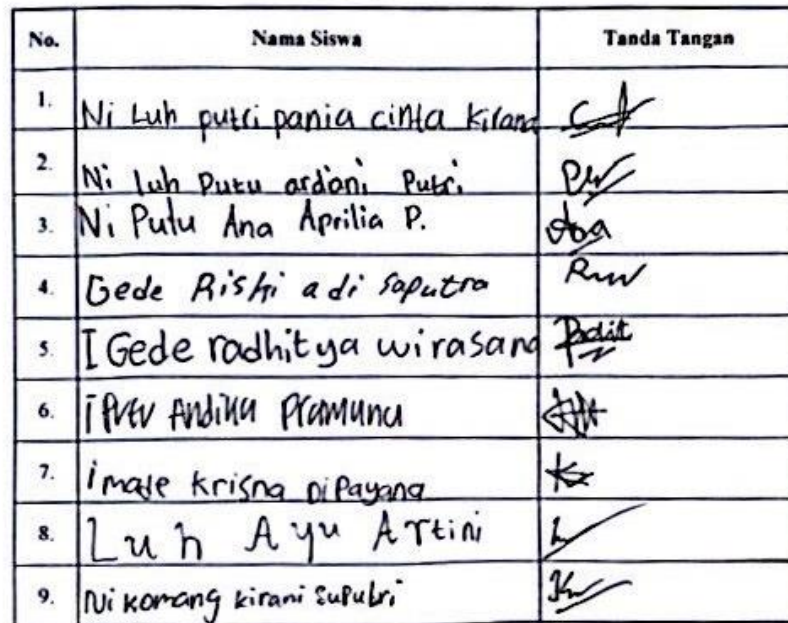 No. Nama Siswa Tanda Tangan
1. Ni Luh putri pania cinta kirana
2. Ni luh Putu ardani Putri
3. Ni Putu Ana Aprilia P. Ana
4. Gede Riski adi saputra
5. I Gede radhitya wirasana Radit
6. i Putu Andika Pramana
7. i made krisna dipayana
8. Luh Ayu Artini
9. Ni komang kirani